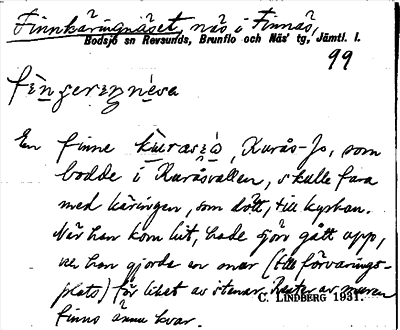 Finnkäringnäset, näs i Finnäs,
Bodsjö sn Revsunds, Brunflo och Näs' tg, Jämtl. l.
99
En finne , Kurås-Jo, som
bodde i Kuråsvallen, skulle fara
med käringen, som dött, till kyrkan.
När han kom hit, hade sjön gått upp,
så han gjorde en mar (till förvarings-
plats) för liket av stenar. Rester av maren
C. LINDBERG 1931.
finns ännu kvar.